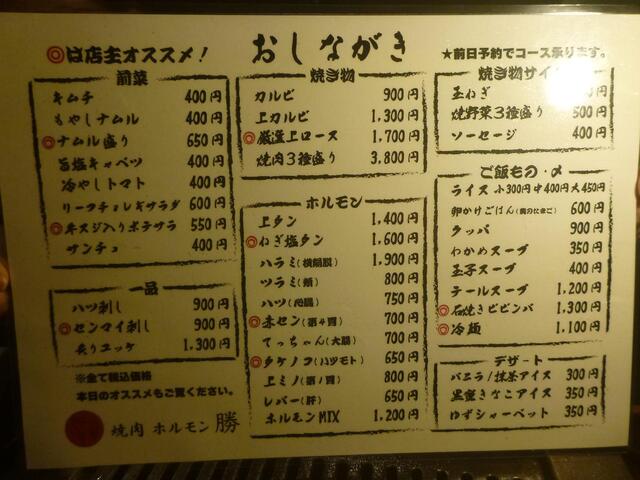 ◎は店主オススメ!
おしながき
★前日予約でコース承ります。
前菜
キムチ 400円
もやしナムル 400円
◎ナムル盛り 650円
旨塩キャベツ 400円
冷やしトマト 400円
リーフチョレギサラダ 600円
◎牛スジ入りポテサラ 550円
サンチュ 400円
一品
ハツ刺し 900円
◎センマイ刺し 900円
炙りユッケ 1,300円
※全て税込価格
本日のオススメもご覧ください。
焼肉 ホルモン 勝
焼き物
カルビ 900円
上カルビ 1,300円
◎厳選上ロース 1,700円
焼肉3種盛り 3,800円
ホルモン
上タン 1,400円
◎ねぎ塩タン 1,600円
ハラミ(横隔膜) 1,900円
ツラミ(頬) 800円
ハツ(心臓) 750円
◎赤セン(第4胃) 700円
てっちゃん(大腸) 700円
◎タケノコ(ハツモト) 650円
上ミノ(第1胃) 800円
レバー(肝) 650円
ホルモンMIX 1,200円
焼き物サイド
玉ねぎ 円
焼野菜3種盛り 500円
ソーセージ 400円
ご飯もの・〆
ライス 小300円 中400円 大450円
卵かけごはん 600円
クッパ 900円
わかめスープ 350円
玉子スープ 400円
テールスープ 1,200円
◎石焼きビビンバ 1,300円
◎冷麺 1,100円
デザート
バニラ/抹茶アイス 300円
黒蜜きなこアイス 350円
ゆずシャーベット 350円